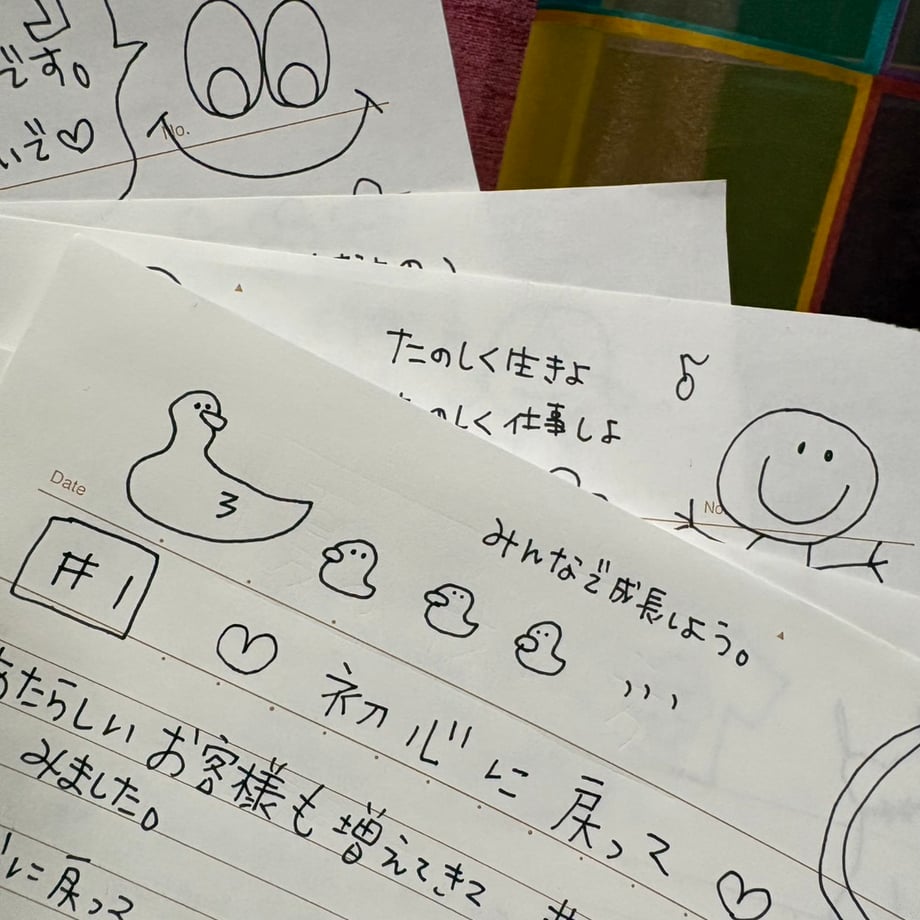 です。
いで♡
No.
たのしく生きよ
のしく仕事しよ
No
Date
みんなで成長しよう。
#1
♡初心に戻って♡
あたらしいお客様も増えてきて
みました。
に戻って